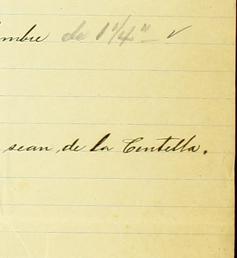 mbre de 1 1/4" ✓
sean de la Centella.